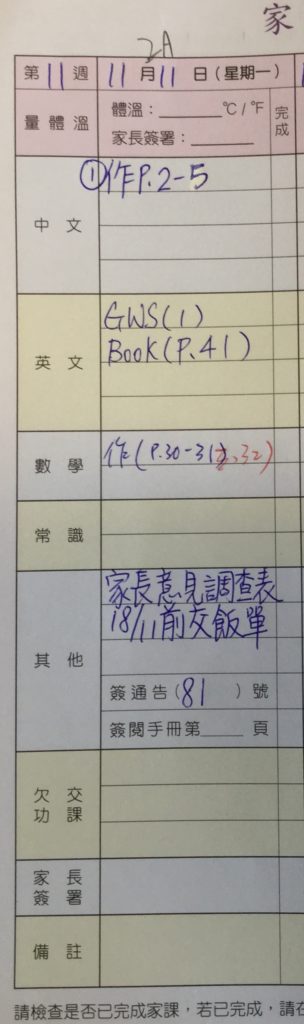 家
2A
第 11 週 11 月 11 日 (星期一)
量體溫 體溫：______℃/℉ 完成
家長簽署：______
中文 ①作P.2-5
英文 GWS(1)
Book(P.41)
數學 作(P.30-31,32)
常識
其他 家長意見調查表
18/11前交飯單
簽通告(81)號
簽閱手冊第____頁
欠交功課
家長簽署
備註
請檢查是否已完成家課，若已完成，請在